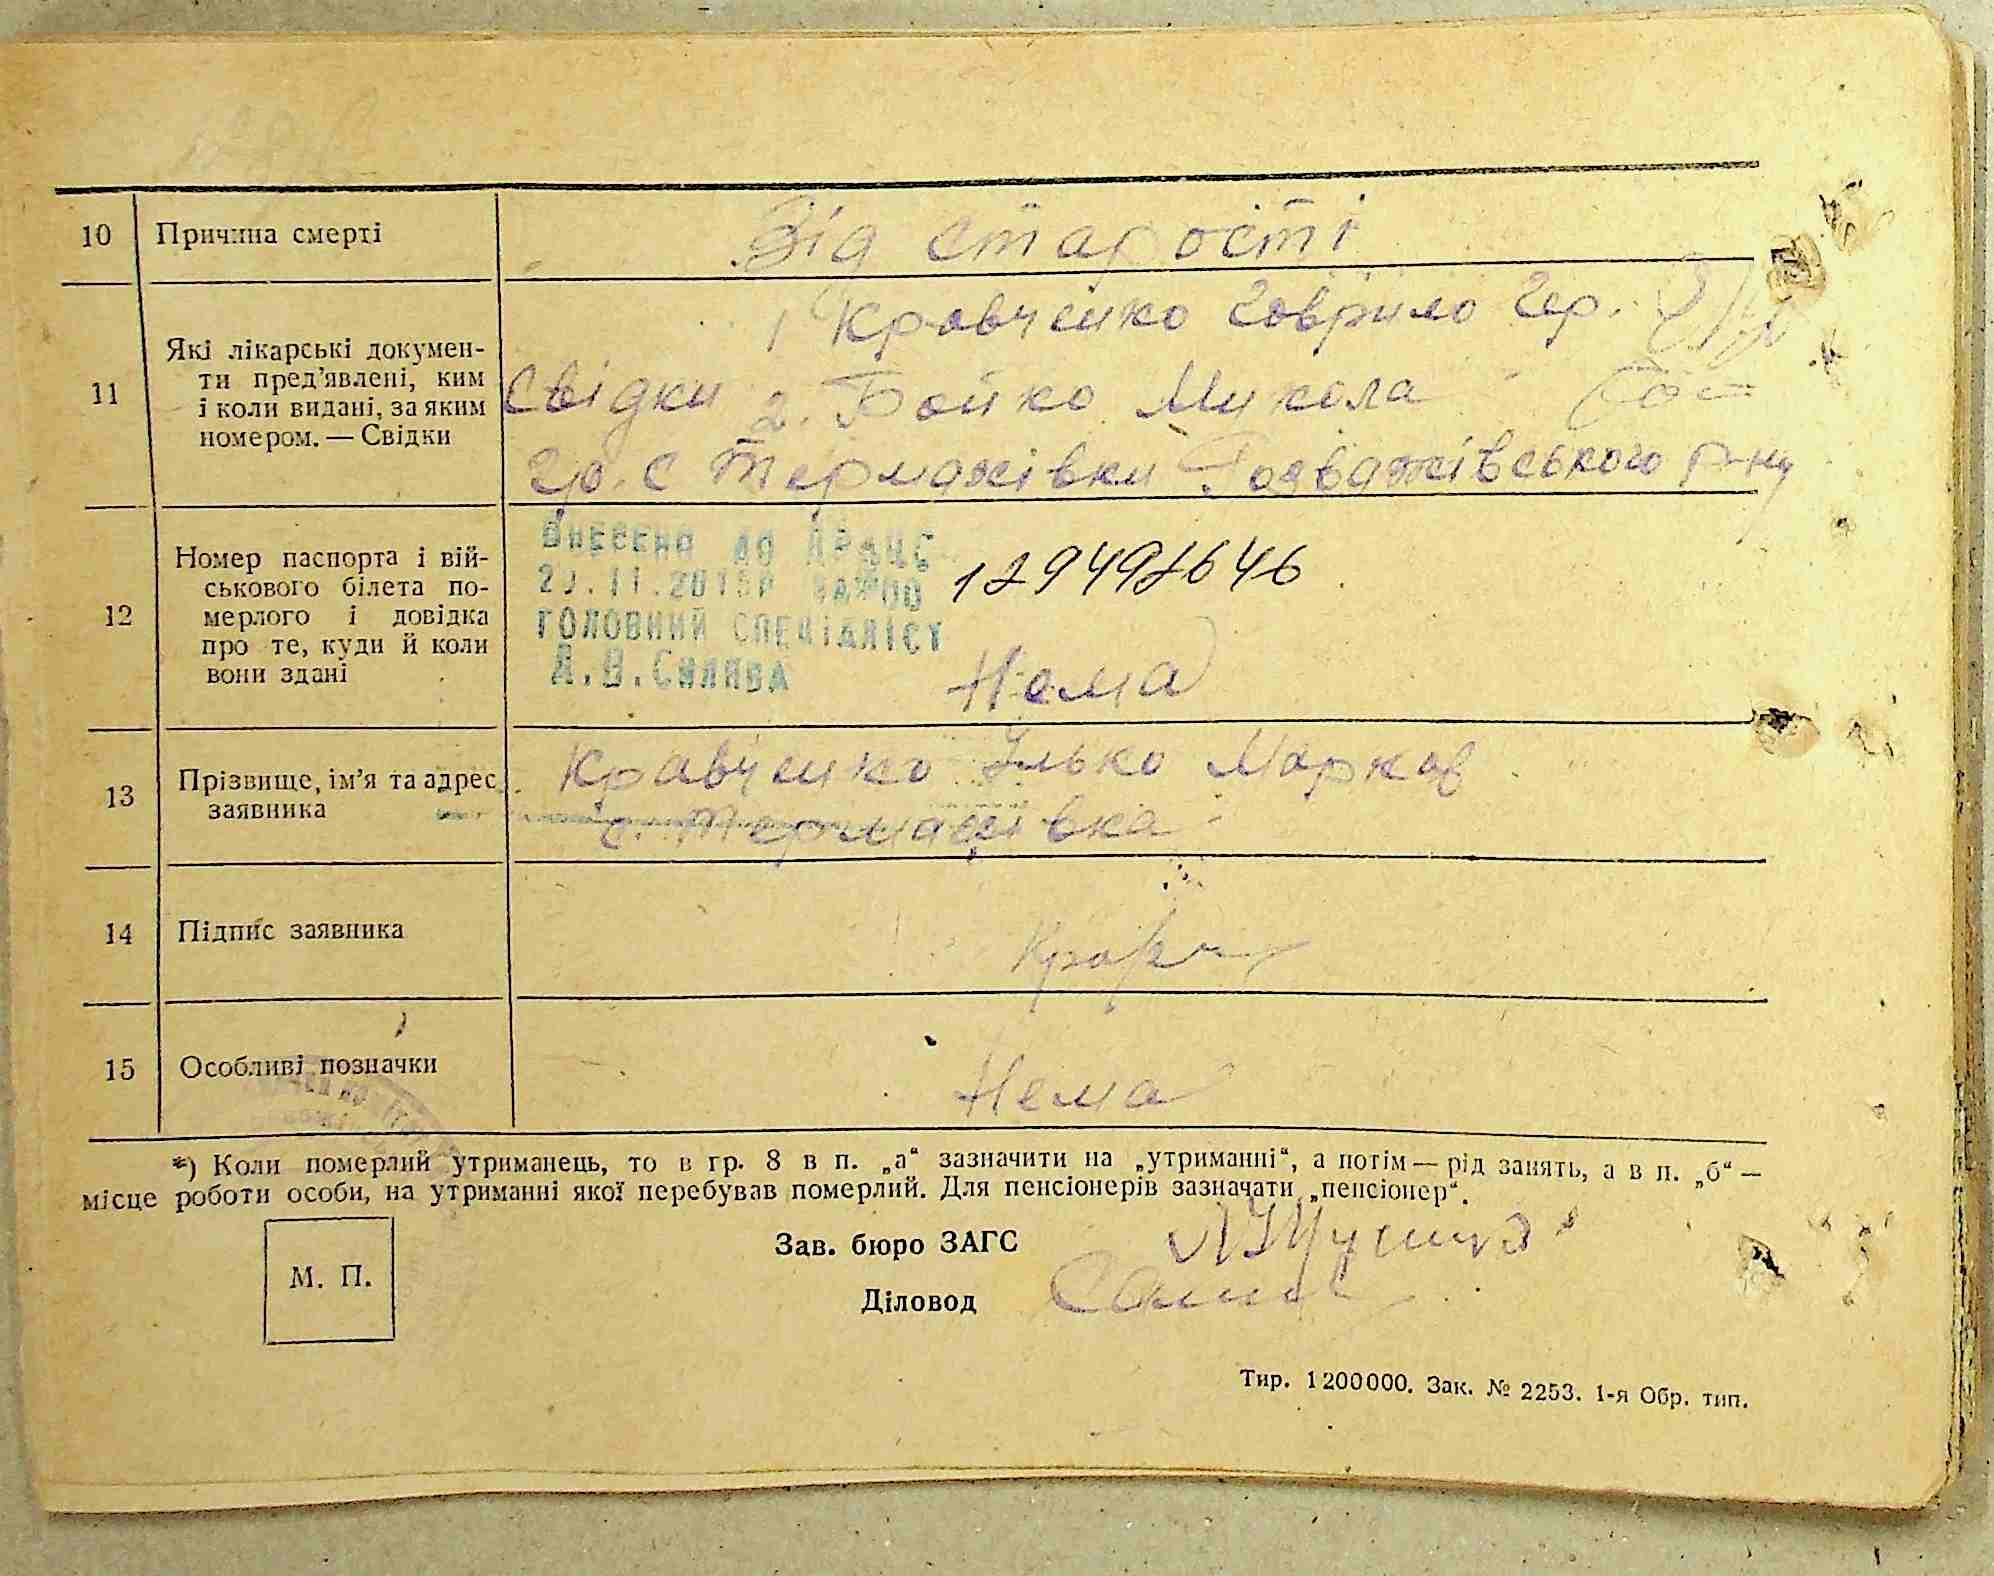 10 Причина смерті Від старості
1 Кравченко Гаврило Гер.
11 Які лікарські докумен-
ти пред’явлені, ким
і коли видані, за яким
номером. — Свідки
Свідки 2. Бойко Микола
гр. с Термахівки Розважівського р-ну
12 Номер паспорта і вій-
ськового білета по-
мерлого і довідка
про те, куди й коли
вони здані
ВНЕСЕНО ДО ДРАЦС
ГОЛОВНИЙ СПЕЦІАЛІСТ
Нема
13 Прізвище, ім’я та адрес
заявника
Кравченко Ілько Марков
с. Термахівка
14 Підпис заявника
15 Особливі позначки
Нема
*) Коли померлий утриманець, то в гр. 8 в п. „а“ зазначити на „утриманні“, а потім — рід занять, а в п. „б“ —
місце роботи особи, на утриманні якої перебував померлий. Для пенсіонерів зазначати „пенсіонер“.
Зав. бюро ЗАГС
М. П.
Діловод
Тир. 1200000. Зак. № 2253. 1-я Обр. тип.